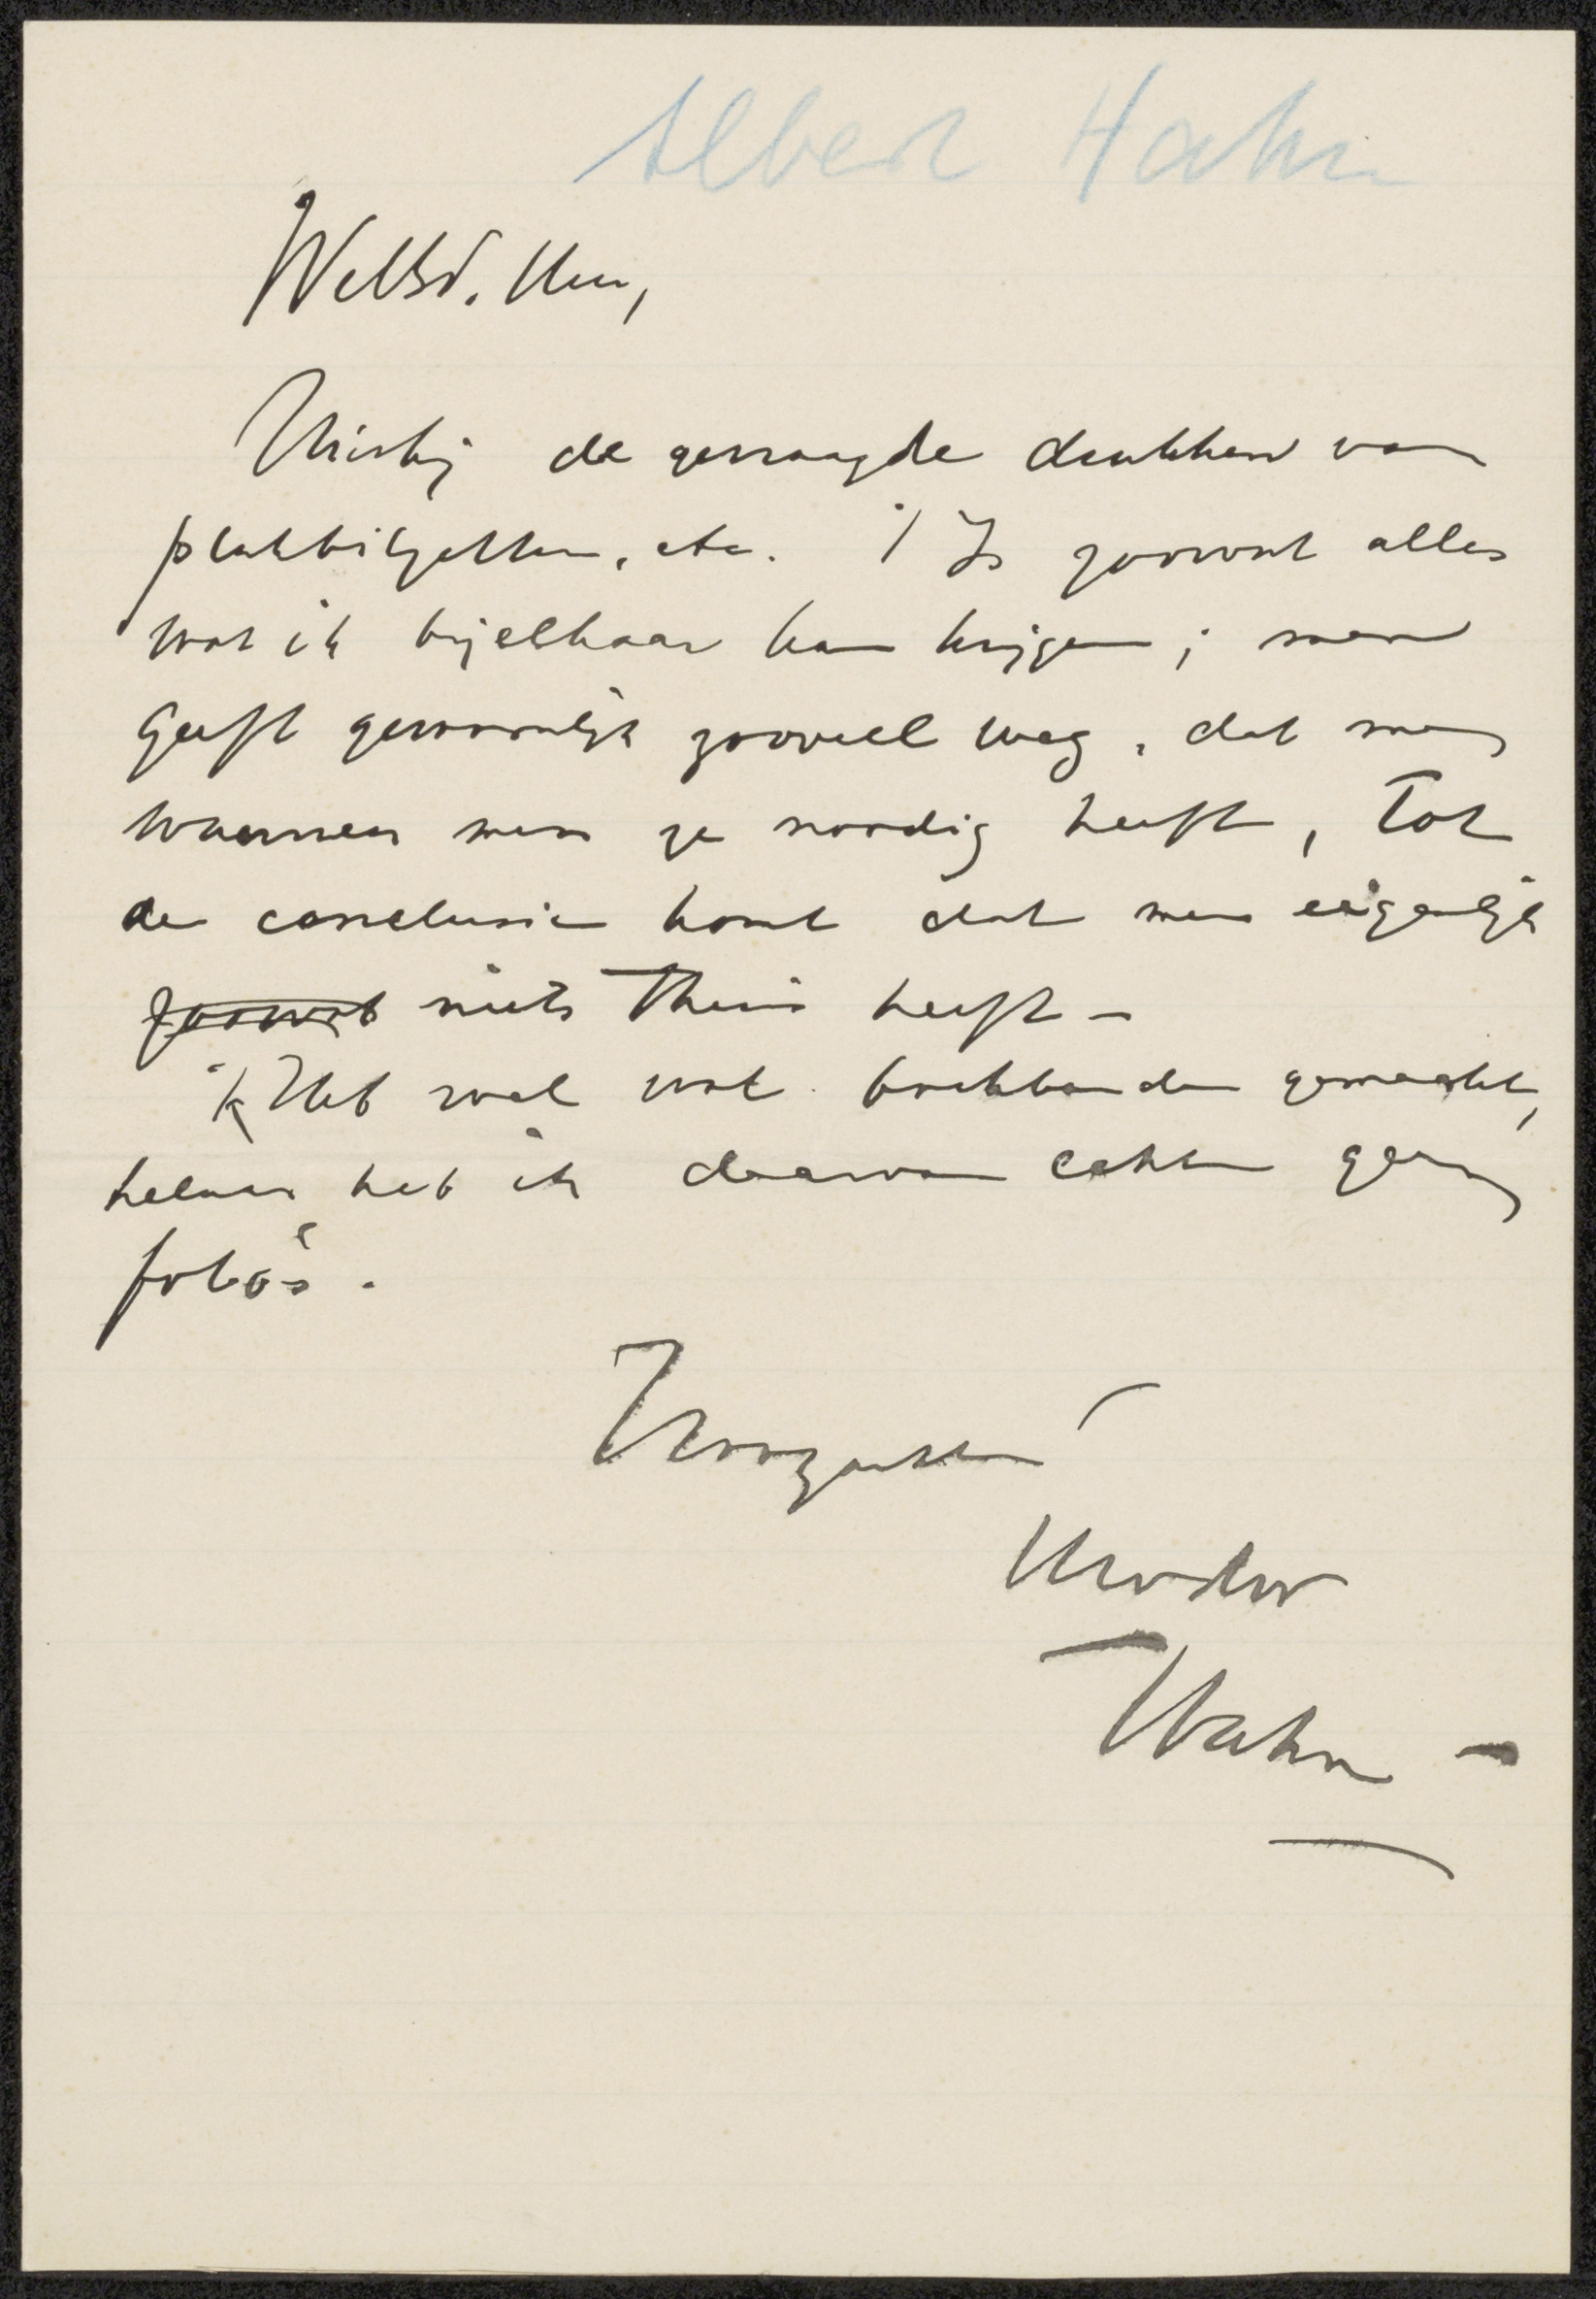 Albert Hahn
WelEd. Heer,
Hierbij de gevraagde drukken van
plakbiljetten, etc. 't Is zoowat alles
wat ik bijelkaar kan krijgen; men
geeft gewoonlijk zooveel weg, dat men
wanneer men ze noodig heeft, tot
de conclusie komt dat men eigenlijk
zoowat niets thuis heeft –
'k Heb wel wat boekbanden gemaakt,
helaas heb ik daarvan echter geen
foto's.
Hoogachtend
Uw dw
Hahn –